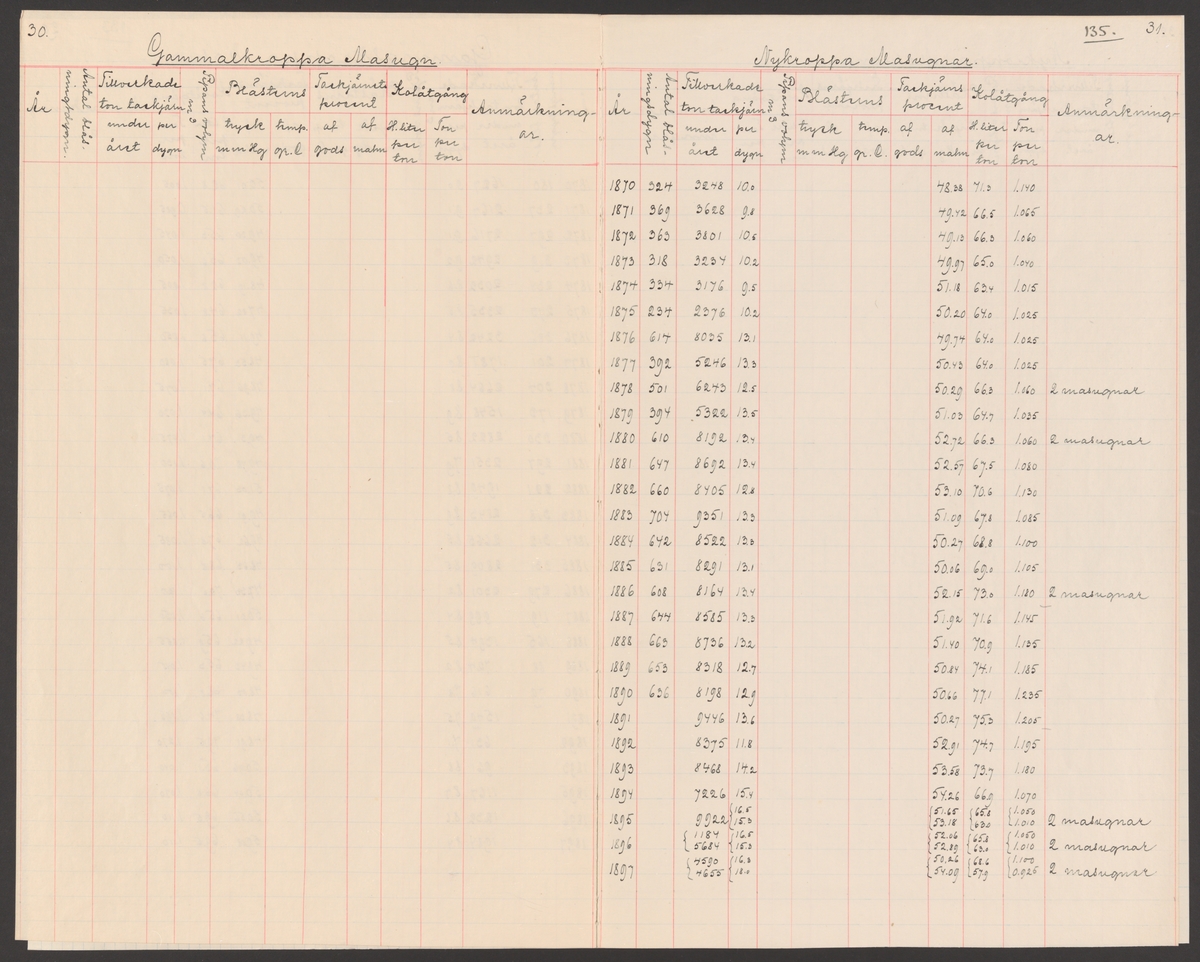 30.
Gammalkroppa Masugn.
År
Antal blås-
ningsdygn.
Tillverkade
ton tackjärn
under
året
per
dygn
Pipans volym
m3
Blästerns
tryck
mm Hg
temp.
gr. C.
Tackjärnets
procent
af
gods
af
malm
Kolåtgång
H. liter
per
ton
Ton
per
ton
Anmärkning-
ar.
135.
31.
Nykroppa Masugnar.
År
Antal blås-
ningsdygn
Tillverkade
ton tackjärn
under
året
per
dygn
Pipans volym
m3
Blästerns
tryck
mm Hg
temp.
gr. C.
Tackjärns
procent
af
gods
af
malm
Kolåtgång
H. liter
per
ton
Ton
per
ton
Anmärkning-
ar.
1870 324 3248 10.0 48.38 71.3 1.140
1871 369 3628 9.8 49.42 66.5 1.065
1872 363 3801 10.5 49.13 66.3 1.060
1873 318 3234 10.2 49.97 65.0 1.040
1874 334 3176 9.5 51.18 63.4 1.015
1875 234 2376 10.2 50.20 64.0 1.025
1876 614 8035 13.1 49.74 64.0 1.025
1877 392 5246 13.3 50.43 64.0 1.025
1878 501 6243 12.5 50.29 66.3 1.060 2 masugnar
1879 394 5322 13.5 51.03 64.7 1.035
1880 610 8192 13.4 52.72 66.3 1.060 2 masugnar
1881 647 8692 13.4 52.57 67.5 1.080
1882 660 8405 12.8 53.10 70.6 1.130
1883 704 9351 13.3 51.09 67.8 1.085
1884 642 8522 13.3 50.27 68.8 1.100
1885 631 8291 13.1 50.06 69.0 1.105
1886 608 8164 13.4 52.15 73.0 1.180 2 masugnar
1887 644 8585 13.3 51.92 71.6 1.145
1888 663 8736 13.2 51.40 70.9 1.135
1889 653 8318 12.7 50.84 74.1 1.185
1890 636 8198 12.9 50.66 77.1 1.235
1891 9446 13.6 50.27 75.3 1.205
1892 8375 11.8 52.91 74.7 1.195
1893 8468 14.2 53.58 73.7 1.180
1894 7226 15.4 54.26 66.9 1.070
16.5 51.65 65.8 1.050
1895 9922 15.3 53.18 63.0 1.010 2 masugnar
1184 16.5 52.06 65.8 1.050
1896 5684 15.3 52.89 63.0 1.010 2 masugnar
4590 16.3 50.26 68.6 1.100
1897 4655 18.0 54.09 57.9 0.925 2 masugnar